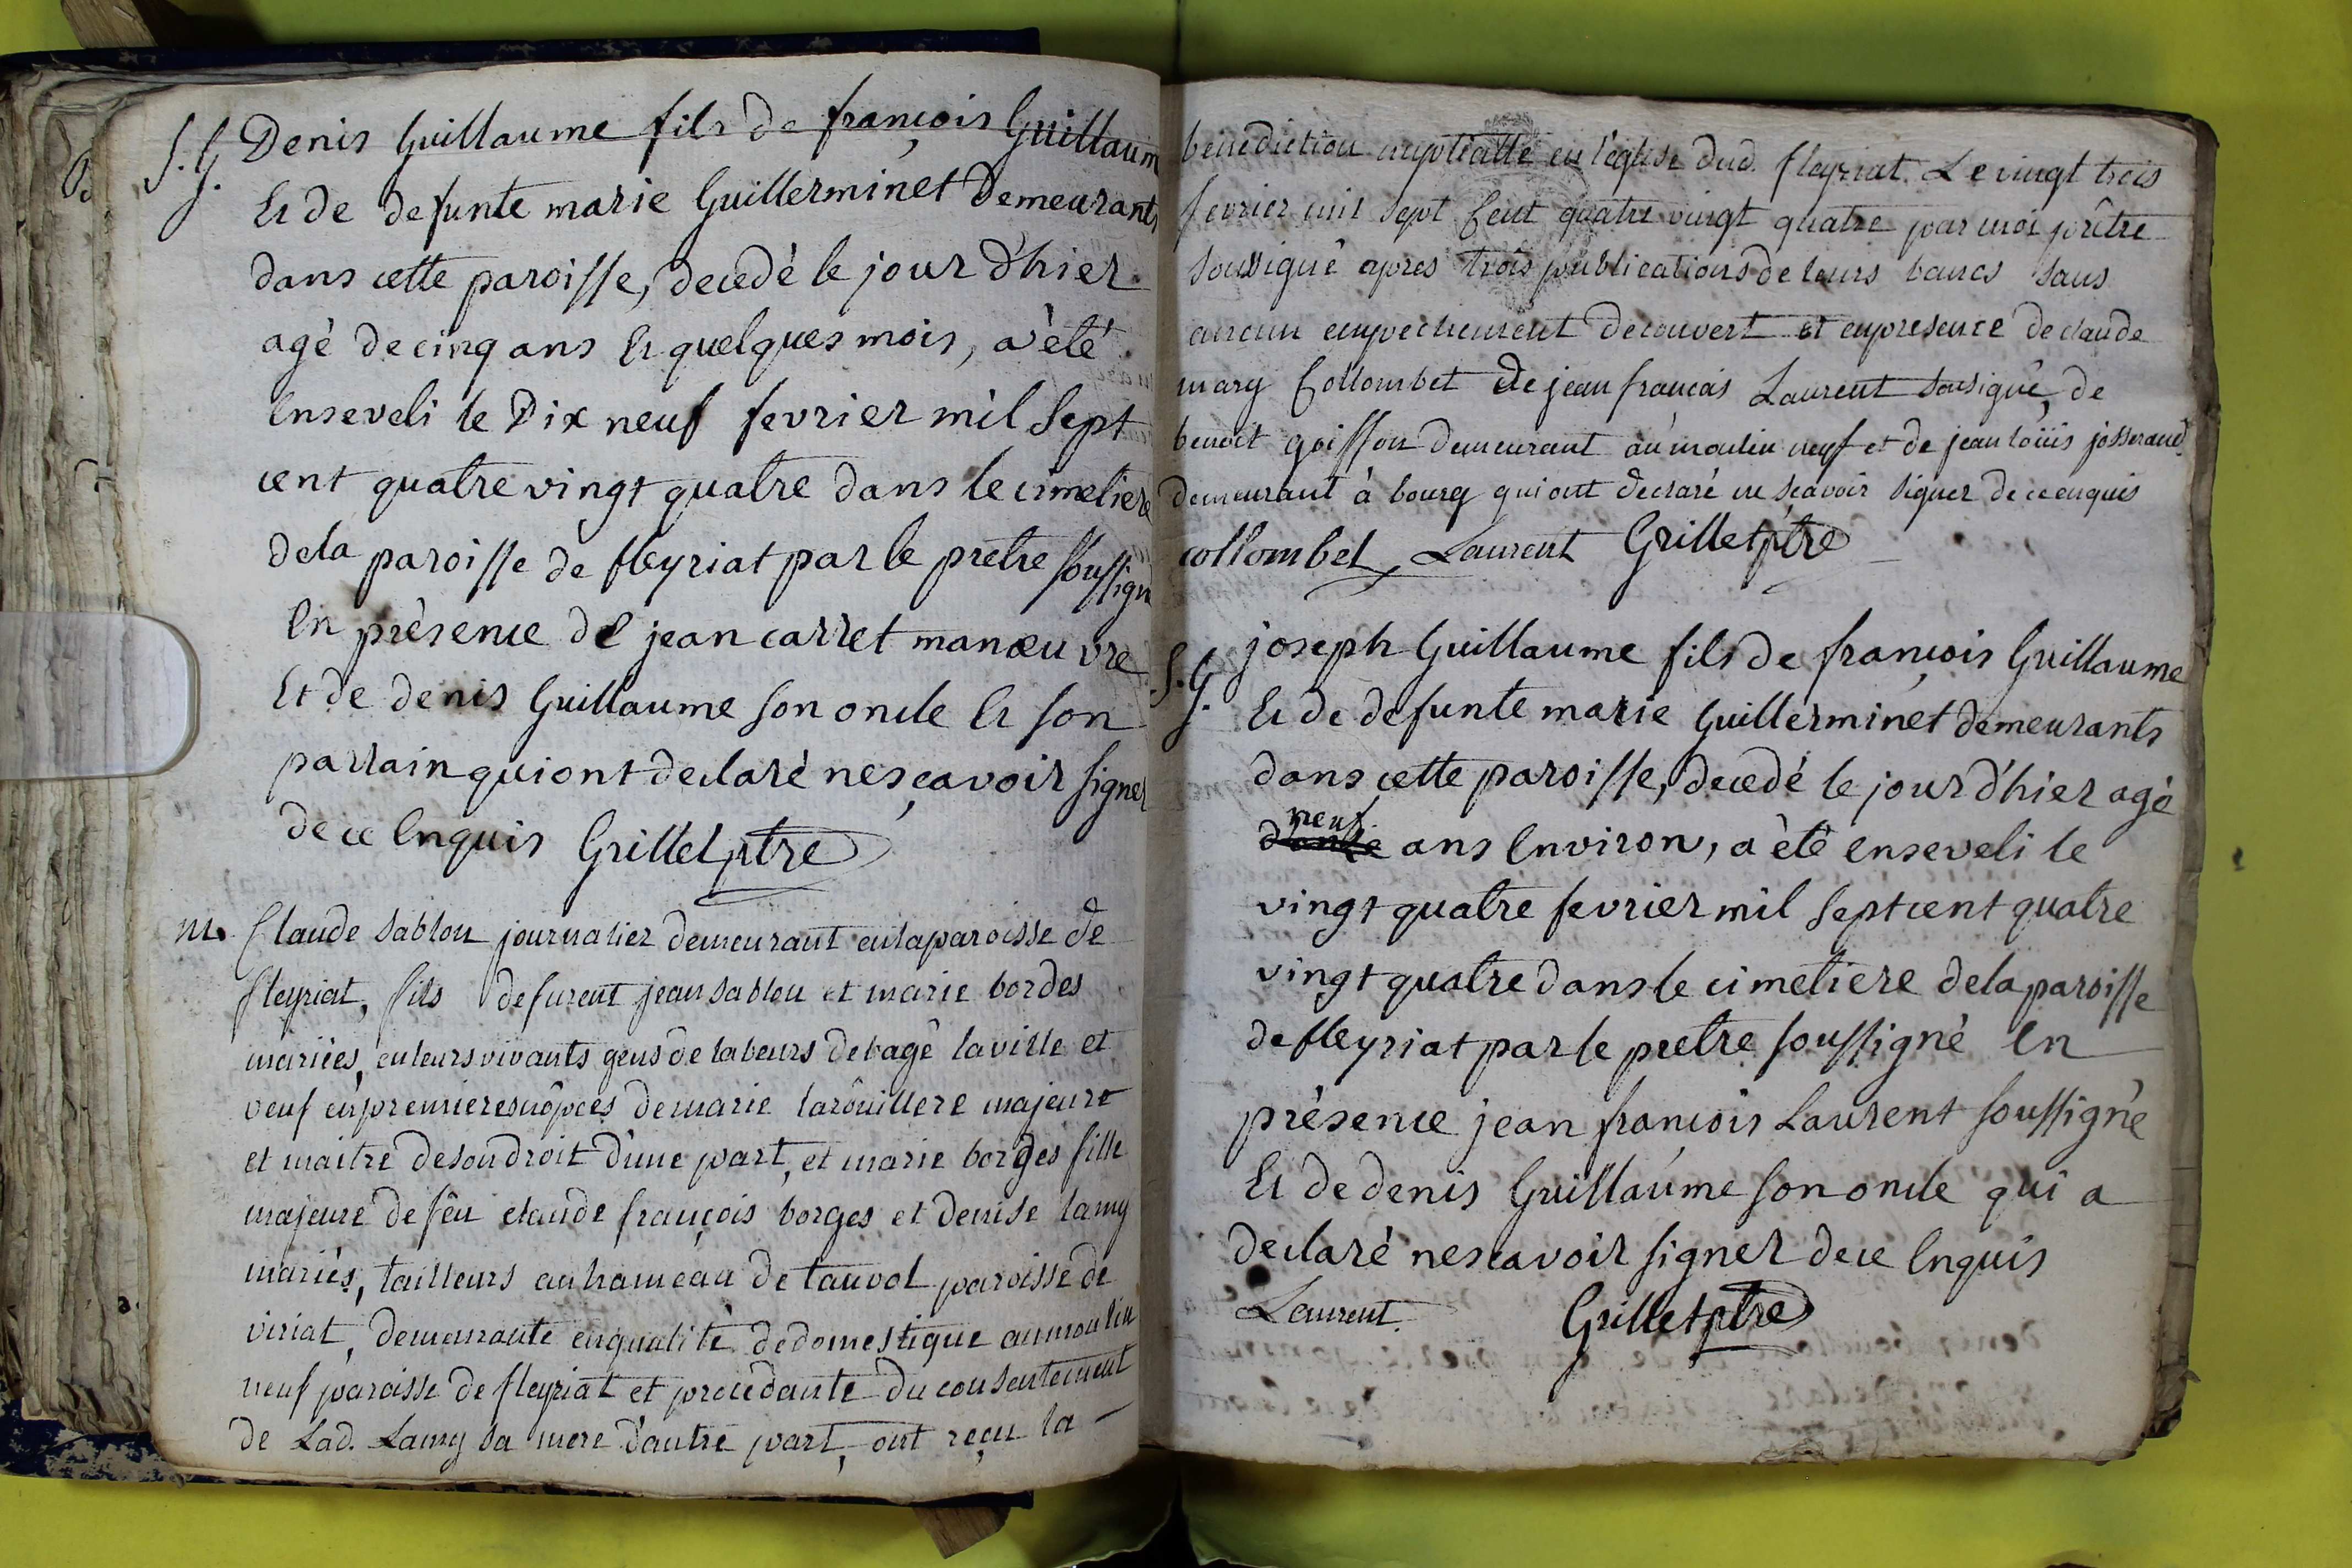 S. G. Denis Guillaume fils de françois Guillaum
g.
Et de defunte marie Guillerminet Demeurants
dans cette paroisse, decedé le jour d'hier
agé de cinq ans Et quelques mois, a été
Enseveli le Dix neuf fevrier mil Sept
cent quatre vingt quatre dans le cimetiere
de la paroisse de fleyriat par le pretre soussigné
En présence de jean carret manœuvre
Et de denis Guillaume son oncle Et son
parrain qui ont declaré ne sçavoir signer
de ce Enquis Grillet ptre
m. Claude Sablon journalier demeurant en la paroisse de
fleyriat, fils defunt jean Sablon et marie bordes
mariées, en leurs vivants gens de labeurs de bagé la ville et
veuf en premieres nôpces de marie larôuillere majeure
et maitre de son droit d'une part, et marie borges fille
majeure de fêu claude françois borges et denise lamy
mariés, tailleurs au hameau de tauvol paroisse de
viriat, demeurante en qualité de domestique au moulin
neuf paroisse de fleyriat et procédante du consentement
de Lad. Lamy sa mere d'autre part, ont reçu la
bénédiction nuptialle en l'église dud. fleyriat. Le vingt trois
fevrier mil sept Cent quatre vingt quatre par moi prêtre
soussigné apres trois publications de leurs bancs sans
aucun empechement decouvert et en presence de claude
mary Collombet de jean francais Laurent sousigné, de
benoit goisson demeurant au moulin neuf et de jean loüis josserand
demeurant à bourg qui ont declaré ne sçavoir signer de ce enquis
collombet Laurent Grillet ptre
joseph Guillaume fils de françois Guillaume
S. G.
g. Et de defunte marie Guillerminet demeurants
dans cette paroisse, decedé le jour d'hier agé
neuf
ans Environ, a été enseveli le
vingt quatre fevrier mil sept cent quatre
vingt quatre dans le cimetiere de la paroisse
de fleyriat par le pretre soussigné En
présence jean françois Laurent soussigné
Et de denis Guillaume son oncle qui a
declaré ne scavoir signer de ce Enquis
Laurent. Grillet ptre